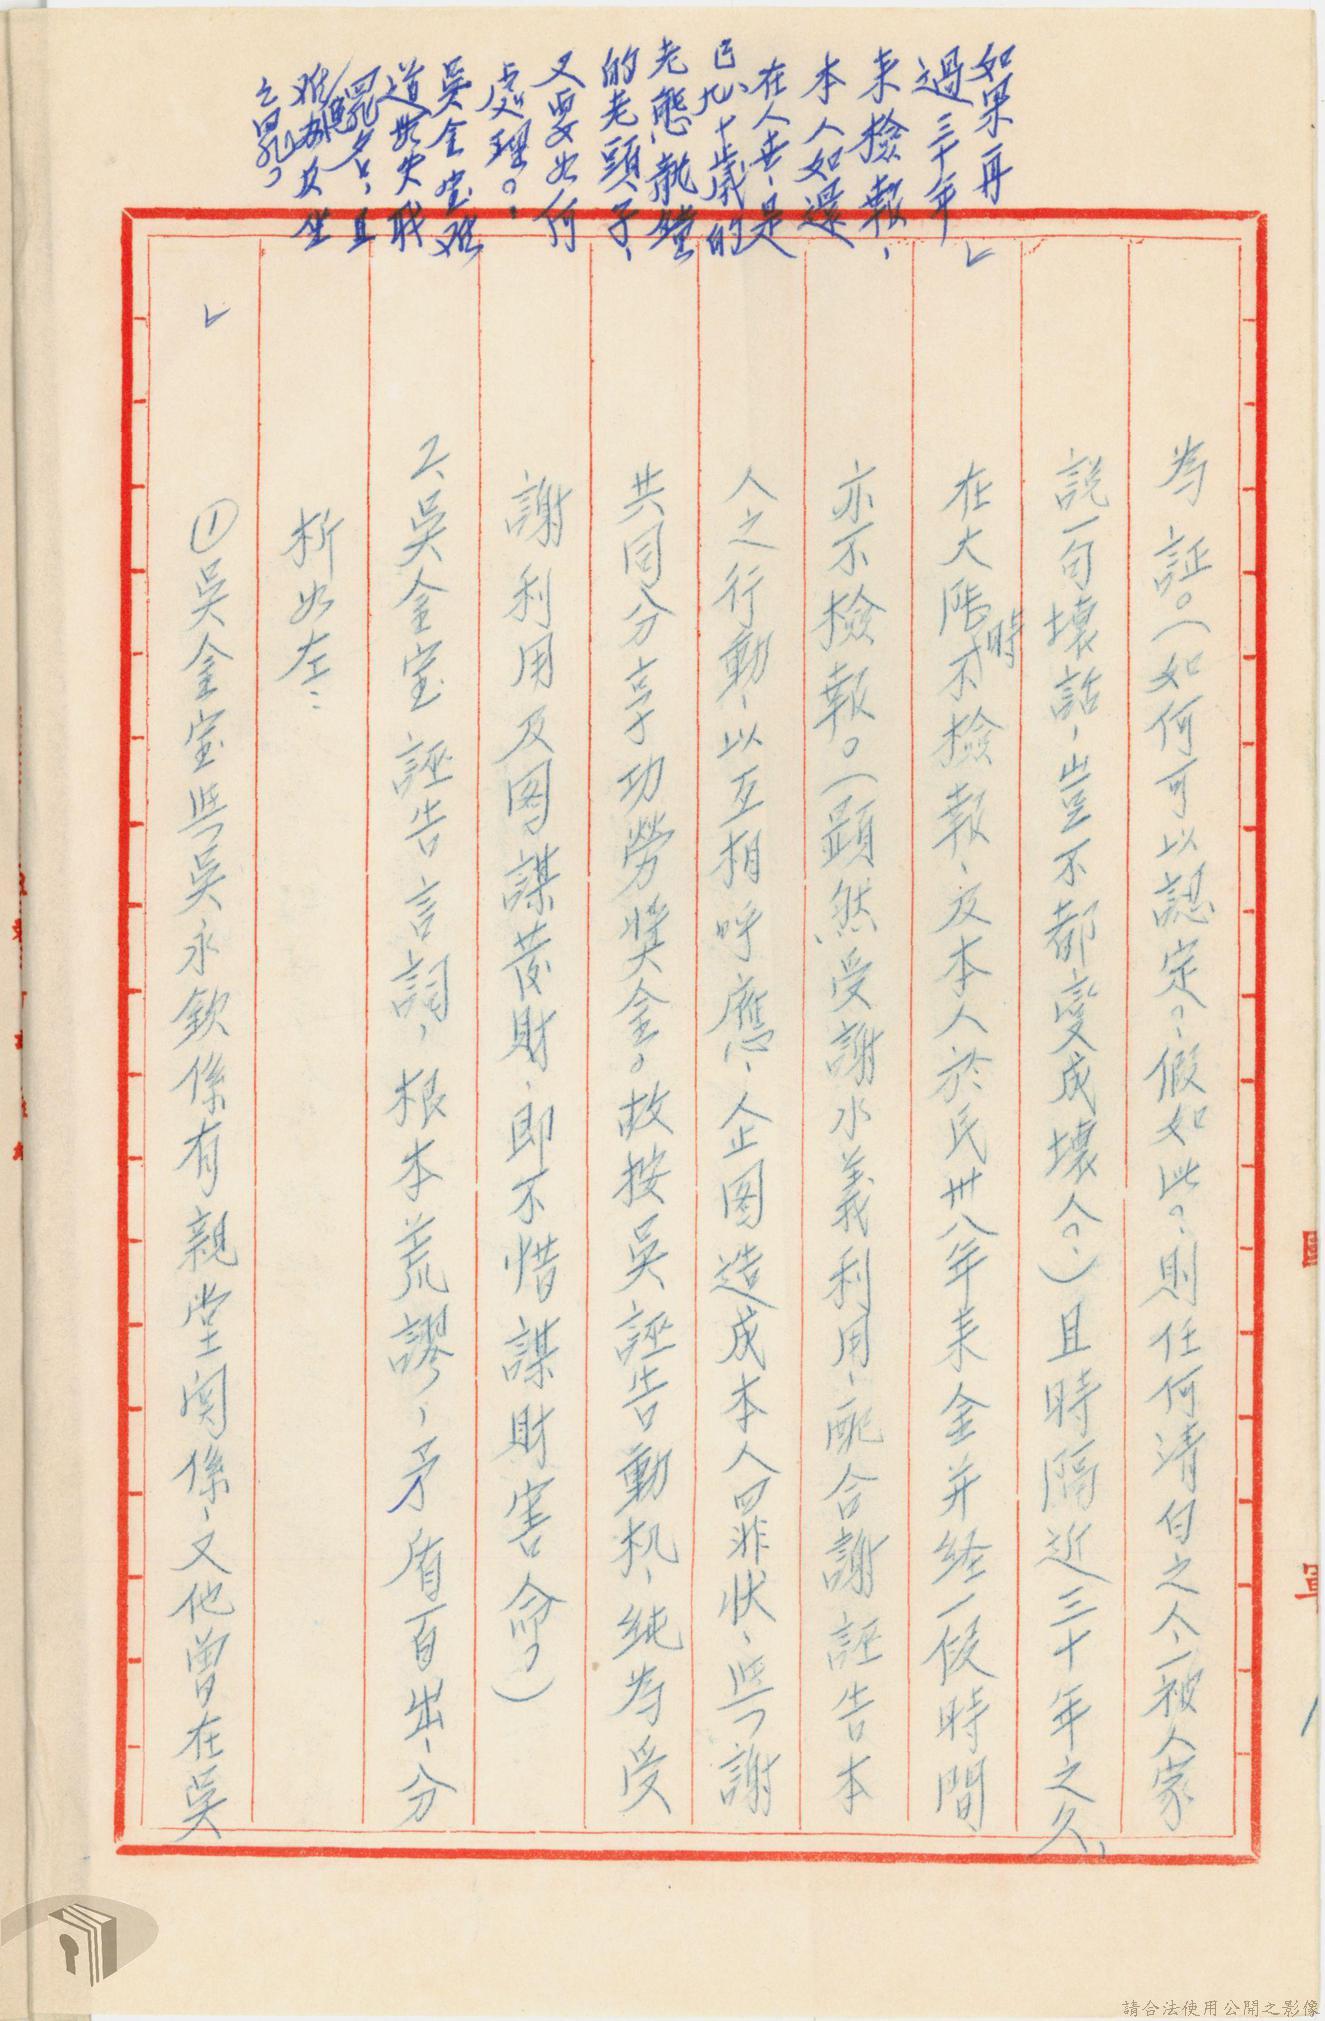 如果再
過三十年
来檢報、
本人如還
在人世、是
已九十歲的
老態龍鐘
的老頭子、
又要如何
處理。？
吳金宝难
道無失職
罪名，且

之罪？
為証。（如何可以認定？、假如此？、則任何清白之人、一被人家
説一句壞話，豈不都变成壞人？、）且時隔近三十年之久、
在大陸時不檢報、及本人於民卅八年来金并経一段時間
亦不檢報。（顕然受謝水義利用、配合謝誣告本
人之行動、以互相呼應、企图造成本人罪状、與謝
共同分享功勞奬金。故按吳誣告動机、纯為受
謝利用及图謀發財、即不惜謀財害命？）
二、吳金宝誣告言詞，根本荒謬，矛盾百出、分
析如左：
①吳金宝與吳永欽係有親堂関係、又他曾在吳
請合法使用公開之影像